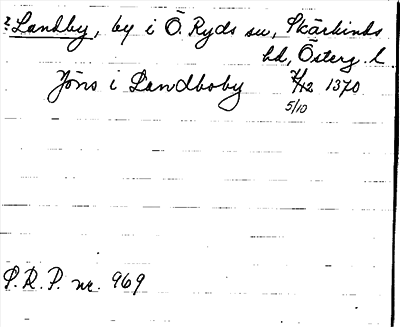 ? Landby, by i Ö. Ryds sn, Skärkinds
hd, Österg. l
Jöns i Landboby 7/12 1370
5/10
P.R.P. nr. 969